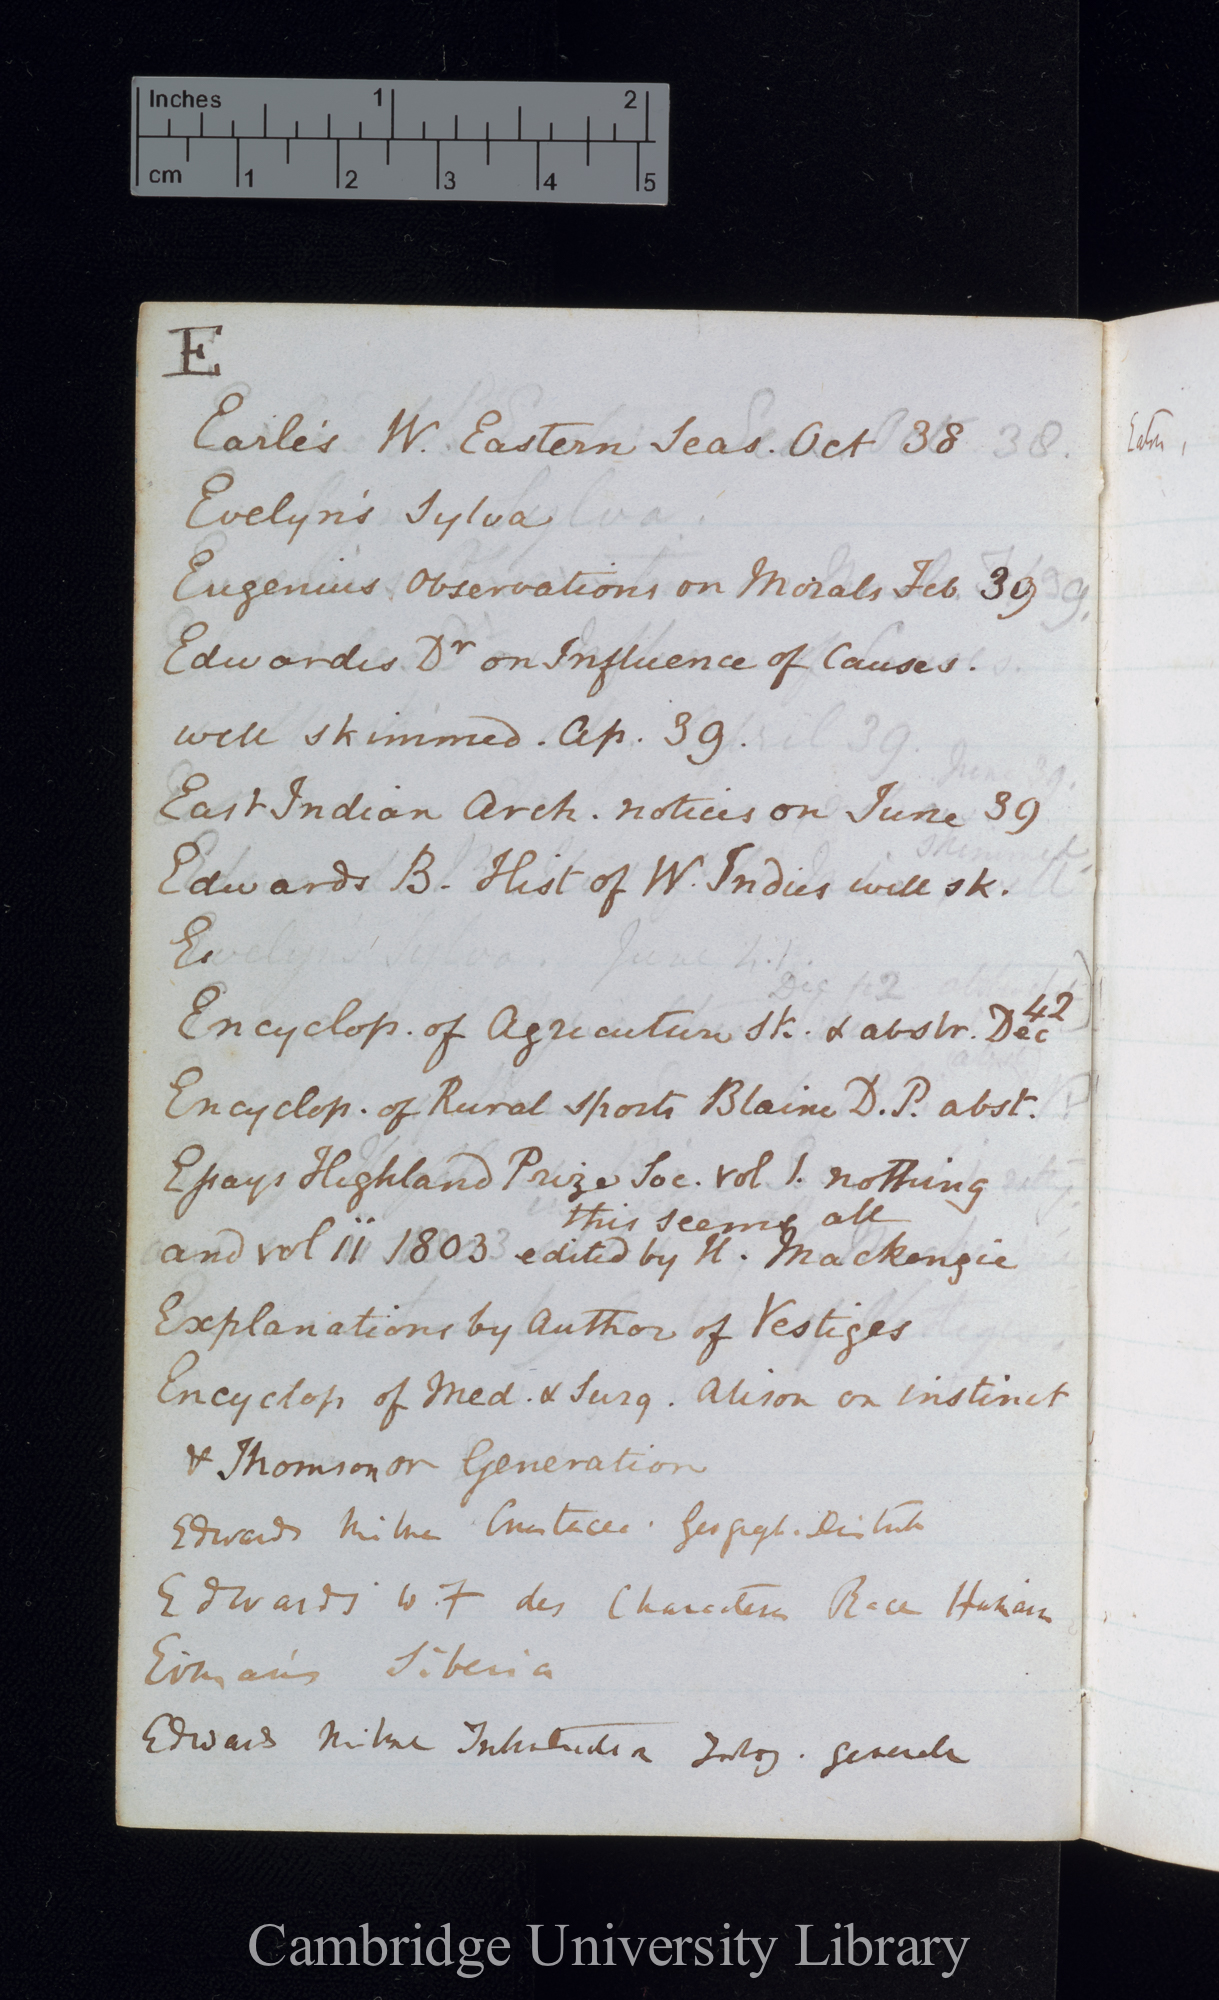 Inches 1 2
cm 1 2 3 4 5
E
Earle's W. Eastern Seas. Oct 38
Evelyn's Sylva
Eugenius Observations on Morals Feb 39
Edwardes Dr on Influence of Causes.
well skimmed. Ap. 39.
East Indian Arch. notices on June 39
Edwards B. Hist of W. Indies well sk.
E
Encyclop. of Agriculture sk. & abstr. Dec 42
Encyclop. of Rural Sports Blaine D.P. abst.
Essays Highland Prize Soc. vol 1. nothing
this seems all
and vol ii 1803 edited by H. Mackenzie
Explanations by Author of Vestiges
Encyclop of Med. & Surg. Alison on instinct
& Thomson on Generation
Edwards Milne Crustacea. Geograph. Distrib
Edwards W. F des Characteres Race Humain
Erman's Siberia
Edwards Milne Introduction Zoolog. generale
Cambridge University Library